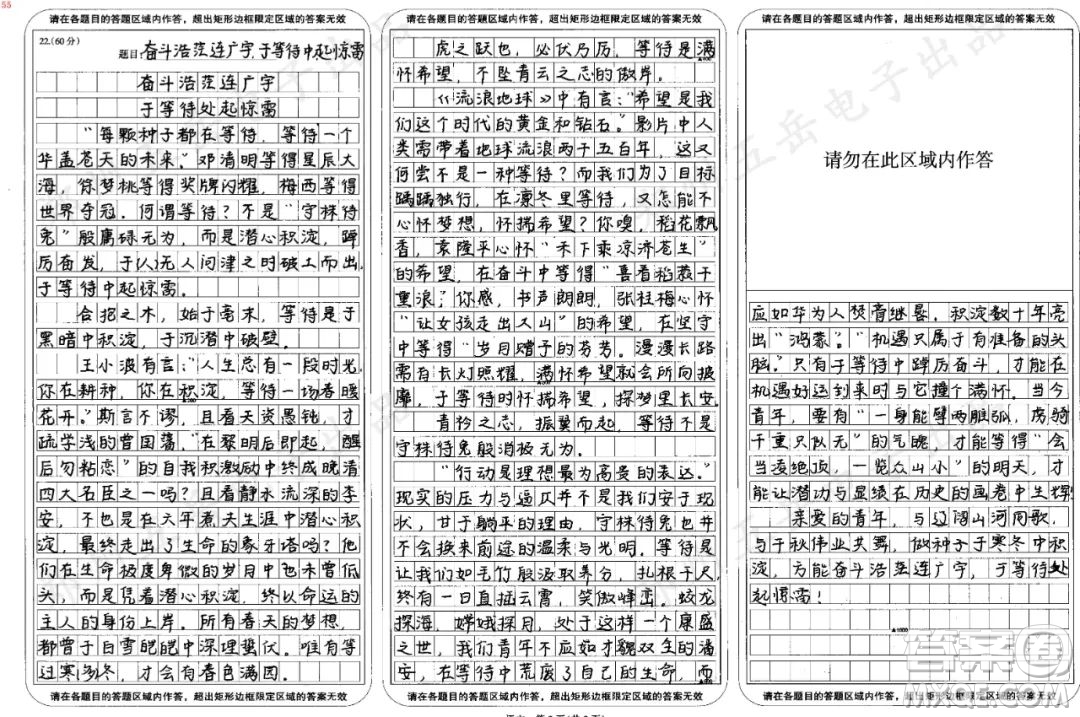 55
请在各题目的答题区域内作答，超出矩形边框限定区域的答案无效
22.(60分)
题目 奋斗浩茫连广宇，于等待中起惊雷
奋斗浩茫连广宇
于等待处起惊雷
“每颗种子都在等待，等待一个
华盖苍天的未来”邓清明等得星辰大
海，徐梦桃等得奖牌闪耀，梅西等得
世界夺冠。何谓等待？不是“守株待
兔”般庸碌无为，而是潜心积淀，踔
厉奋发，于(人)无人问津之时破土而出，
于等待中起惊雷。
合抱之木，始于毫末，等待是于
黑暗中积淀，于沉潜中破壁。
王小波有言：“人生总有一段时光，
你在耕种，你在积淀，等待一场春暖
花开。”斯言不谬，且看天资愚钝，才
疏学浅的曾国藩，“在黎明后即起，醒
后勿粘恋”的自我积激励中终成晚清
四大名臣之一吗？且看静水流深的李
安，不也是在六年煮夫生涯中潜心积
淀，最终走出了生命的象牙塔吗？他
们在生命极度卑微的岁月中也未曾低
头，而是凭着潜心积淀，终以命运的
主人的身份上岸。所有春天的梦想，
都曾于白雪皑皑中深理蛰伏。唯有等
过寒冽冬，才会有春色满园。
请在各题目的答题区域内作答，超出矩形边框限定区域的答案无效
请在各题目的答题区域内作答，超出矩形边框限定区域的答案无效
虎之跃也，必伏乃厉，等待是满
怀希望，不坠青云之志的傲岸。
《流浪地球》中有言：“希望是我
们这个时代的黄金和钻石。”影片中人
类需带着地球流浪两千五百年，这又
何尝不是一种等待？而我们为了目标
踽踽独行，在凛冬里等待，又怎能不
心怀梦想，怀揣希望？你嗅，稻花飘
香，袁隆平心怀“禾下乘凉济苍生”
的希望，在奋斗中等得“喜看稻菽千
重浪”；你感，书声朗朗，张桂梅心怀
“让女孩走出大山”的希望，在坚守
中等得“岁月赠予的芬芳。漫漫长路
需有长灯照耀，满怀希望就会所向披
靡，于等待时怀揣希望，探梦里长安。
青衿之志，振翼而起，等待不是
守株待兔般消极无为。
“行动是理想最为高贵的表达。”
现实的压力与逼仄并不是我们安于现
状，甘于躺平的理由，守株待兔也并
不会换来前途的温柔与光明。等待是
让我们如毛竹般汲取养分，扎根千尺，
终有一日直插云霄，笑傲峰峦。蛟龙
探海，嫦娥探月，处于这样一个康盛
之世，我们青年不应如才貌双全的潘
安，在等待中荒废了自己的生命，而
请在各题目的答题区域内作答，超出矩形边框限定区域的答案无效
请在各题目的答题区域内作答，超出矩形边框限定区域的答案无效
请勿在此区域内作答
应如华为人焚膏继晷，积淀数十年亮
出“鸿蒙”。“机遇只属于有准备的头
脑。”只有于等待中踔厉奋斗，才能在
机遇好运到来时与它撞个满怀。当今
青年，要有“一身能擘两雕弧，虏骑
千重只似无”的气魄，才能等得“会
当凌绝顶，一览众山小”的明天，才
能让潜功与显绩在历史的画卷中生辉。
亲爱的青年，与辽阔山河同歌，
与千秋伟业共舞，做种子于寒冬中积
淀，方能奋斗浩茫连广宇，于等待处
起惊雷！
请在各题目的答题区域内作答，超出矩形边框限定区域的答案无效
答案圈